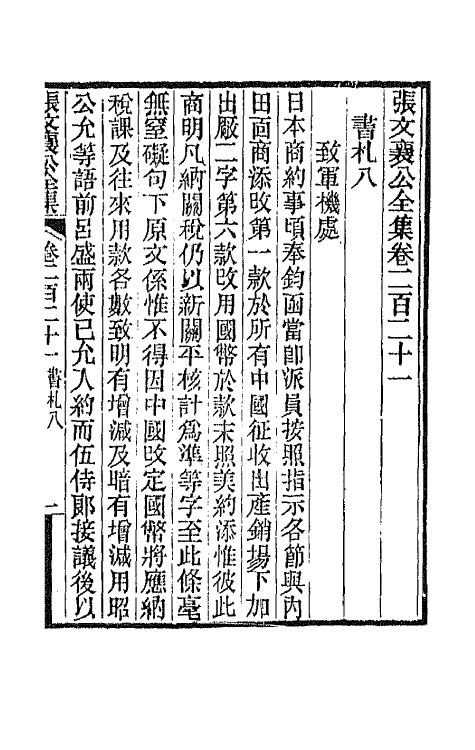 張文襄公全集卷二百二十一
書札八
致軍機處
日本商約事頃奉鈞函當卽派員按照指示各節與內
田面商添改第一款於所有中國征收出產銷場下加
出廠二字第六款改用國幣於款末照美約添惟彼此
商明凡納關稅仍以新關平核計爲準等字至此條毫
無窒礙句下原文係惟不得因中國改定國幣將應納
稅課及往來用款各數致明有增減及暗有增減用昭
公允等語前呂盛兩使已允入約而伍侍郎接議後以
張文襄公全集 卷二百二十一 書札八 一